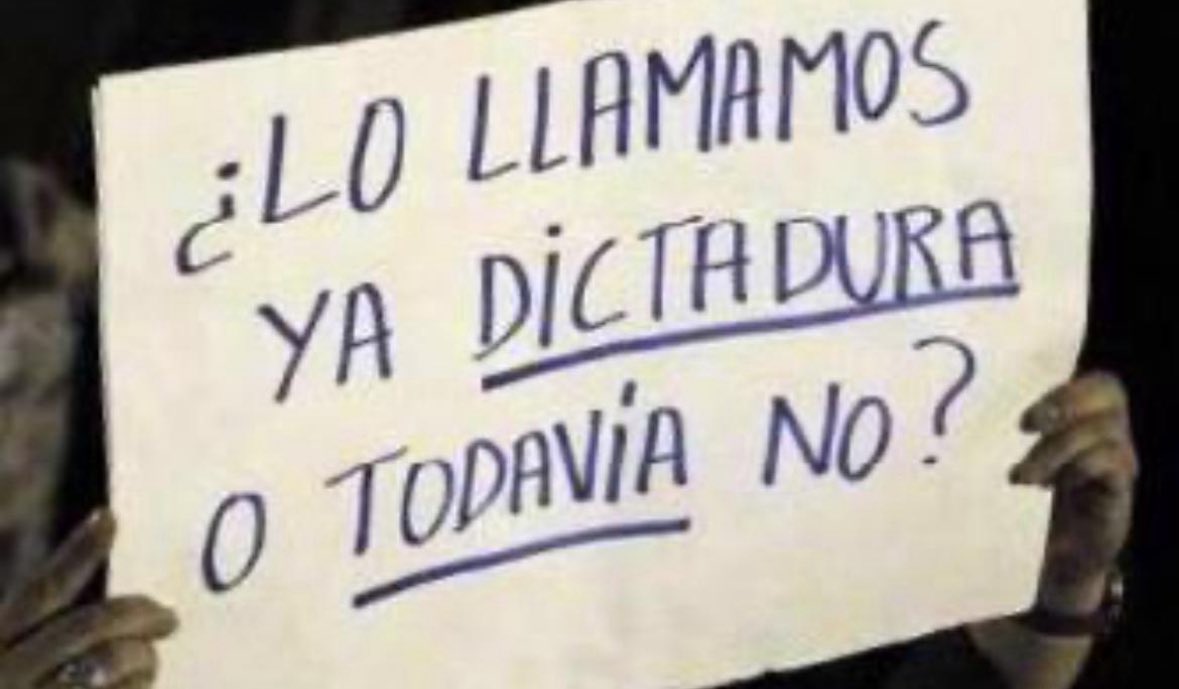 ¿LO LLAMAMOS
YA DICTADURA
O TODAVÍA NO?